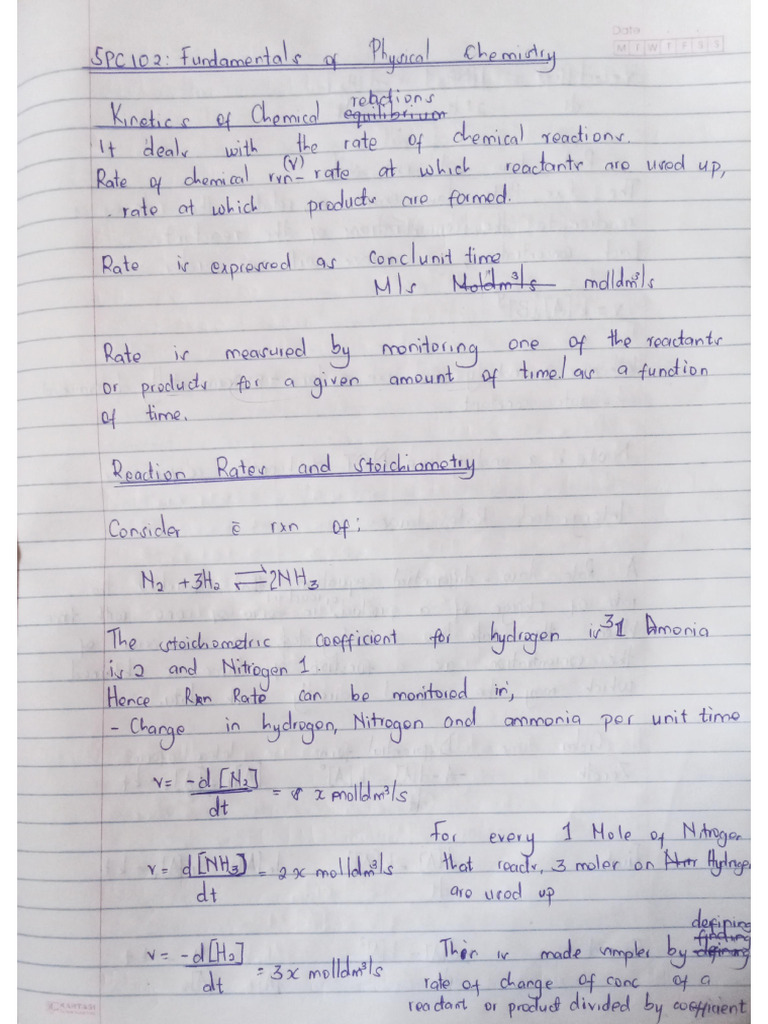 Date
M T W T F S S
SPC102: Fundamentals of Physical Chemistry
Kinetics of Chemical equilibrium reactions
It deals with the rate of chemical reactions.
Rate of chemical rxn (v) - rate at which reactants are used up,
rate at which products are formed.
Rate is expressed as conc/unit time
M/s Mol/dm³/s mol/dm³/s
Rate is measured by monitoring one of the reactants
or products for a given amount of time/ as a function
of time.
Reaction Rates and stoichiometry
Consider ē rxn of:
N₂ + 3H₂ ⇌ 2NH₃
The stoichometric coefficient for hydrogen is 3 Amonia
is 2 and Nitrogen 1.
Hence Rxn Rate can be monitored in;
- Change in hydrogen, Nitrogen and ammonia per unit time
v = -d[N₂]/dt = x mol/dm³/s
For every 1 Mole of Nitrogen
v = d[NH₃]/dt = 2x mol/dm³/s
that reacts, 3 moles on Hydrogen
are used up
v = -d[H₂]/dt = 3x mol/dm³/s
This is made simpler by defining finding defining
rate of change of conc of a
reactant or product divided by coefficient
KARTASI